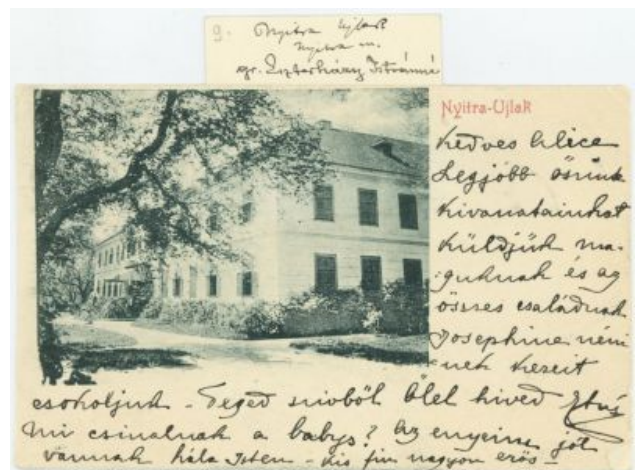 9. Nyitra Ujlak
Nyitra m.
gr. Eszterházy Istvánné
Nyitra-Ujlak
Kedves Alice
Legjobb őszinte
kivanatainkat
küldjük ma-
guknak és az
összes családnak
Josephine néni
nek kezeit
csokoljuk - Teged szivből ölel hived
Mi csinalnak a babys? Az enyeim jól
vannak hála Isten - kis fiu nagyon erös -